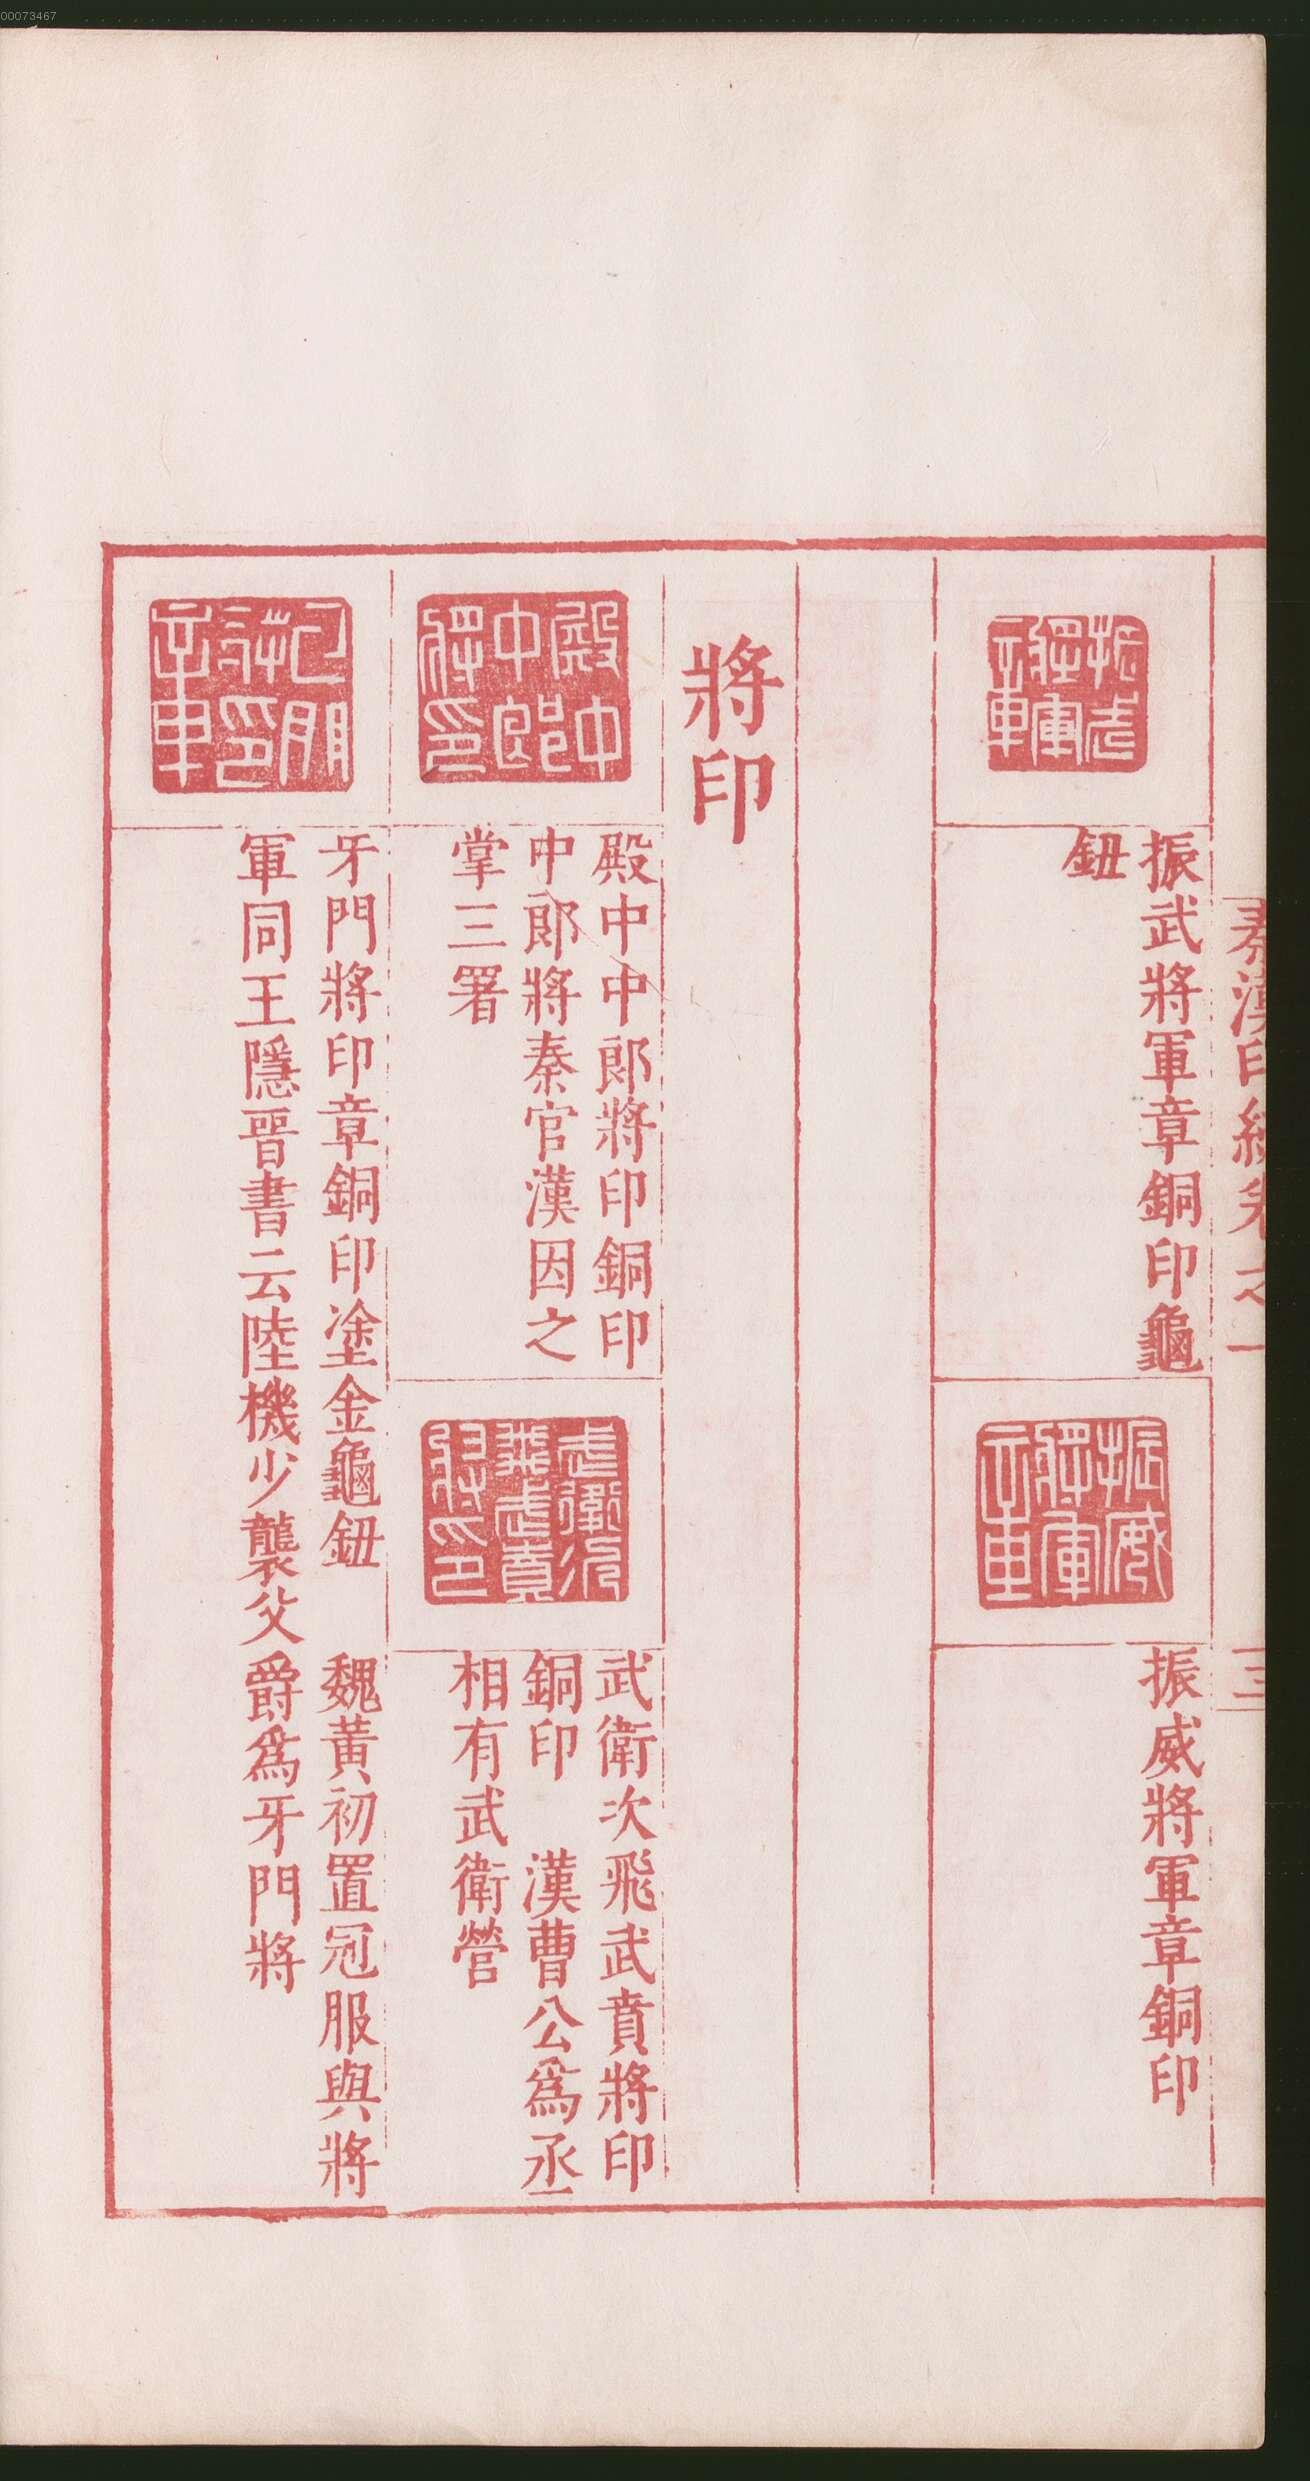 00073467
秦漢印統卷之一
三
振武將軍章
振武將軍章銅印龜
鈕
振威將軍章
振威將軍章銅印
將印
殿中中郎將印
殿中中郎將印銅印
中郎將秦官漢因之
掌三署
武衛次飛武賁將印
武衛次飛武賁將印
銅印 漢曹公爲丞
相有武衛營
牙門將印章
牙門將印章銅印塗金龜鈕 魏黃初置冠服與將
軍同王隱晉書云陸機少襲父爵爲牙門將